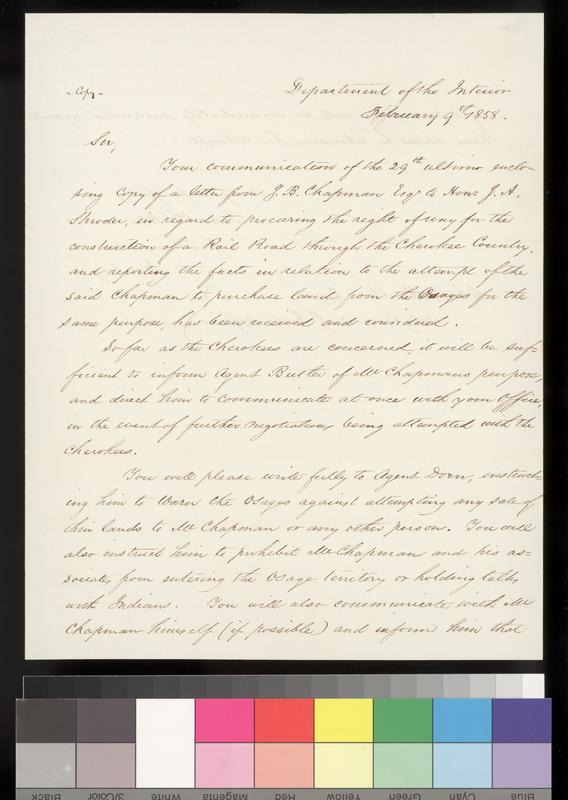 - Copy -
Department of the Interior
February 9th 1858.
Sir,
Your communication of the 29th ultimo enclo-
sing Copy of a letter from J. B. Chapman Esqr to Honr J. A.
Shroder, in regard to procuring the right of way for the
construction of a Rail Road through the Cherokee Country,
and reporting the facts in relation to the attempt of the
said Chapman to purchase land from the Osages for the
same purpose, has been received and considered.
So far as the Cherokees are concerned, it will be suf-
ficient to inform Agent Butler of Mr Chapmans purpose,
and direct him to communicate at once with your Office,
in the event of further negotiations being attempted with the
Cherokees.
You will please write fully to Agent Dorn, instruct-
ing him to warn the Osages against attempting any sale of
their lands to Mr Chapman or any other person. You will
also instruct him to prohibit Mr Chapman and his as-
sociates from entering the Osage territory or holding talks
with Indians. You will also communicate with Mr
Chapman himself (if possible) and inform him that
Black
3/Color
White
Magenta
Red
Yellow
Green
Cyan
Blue